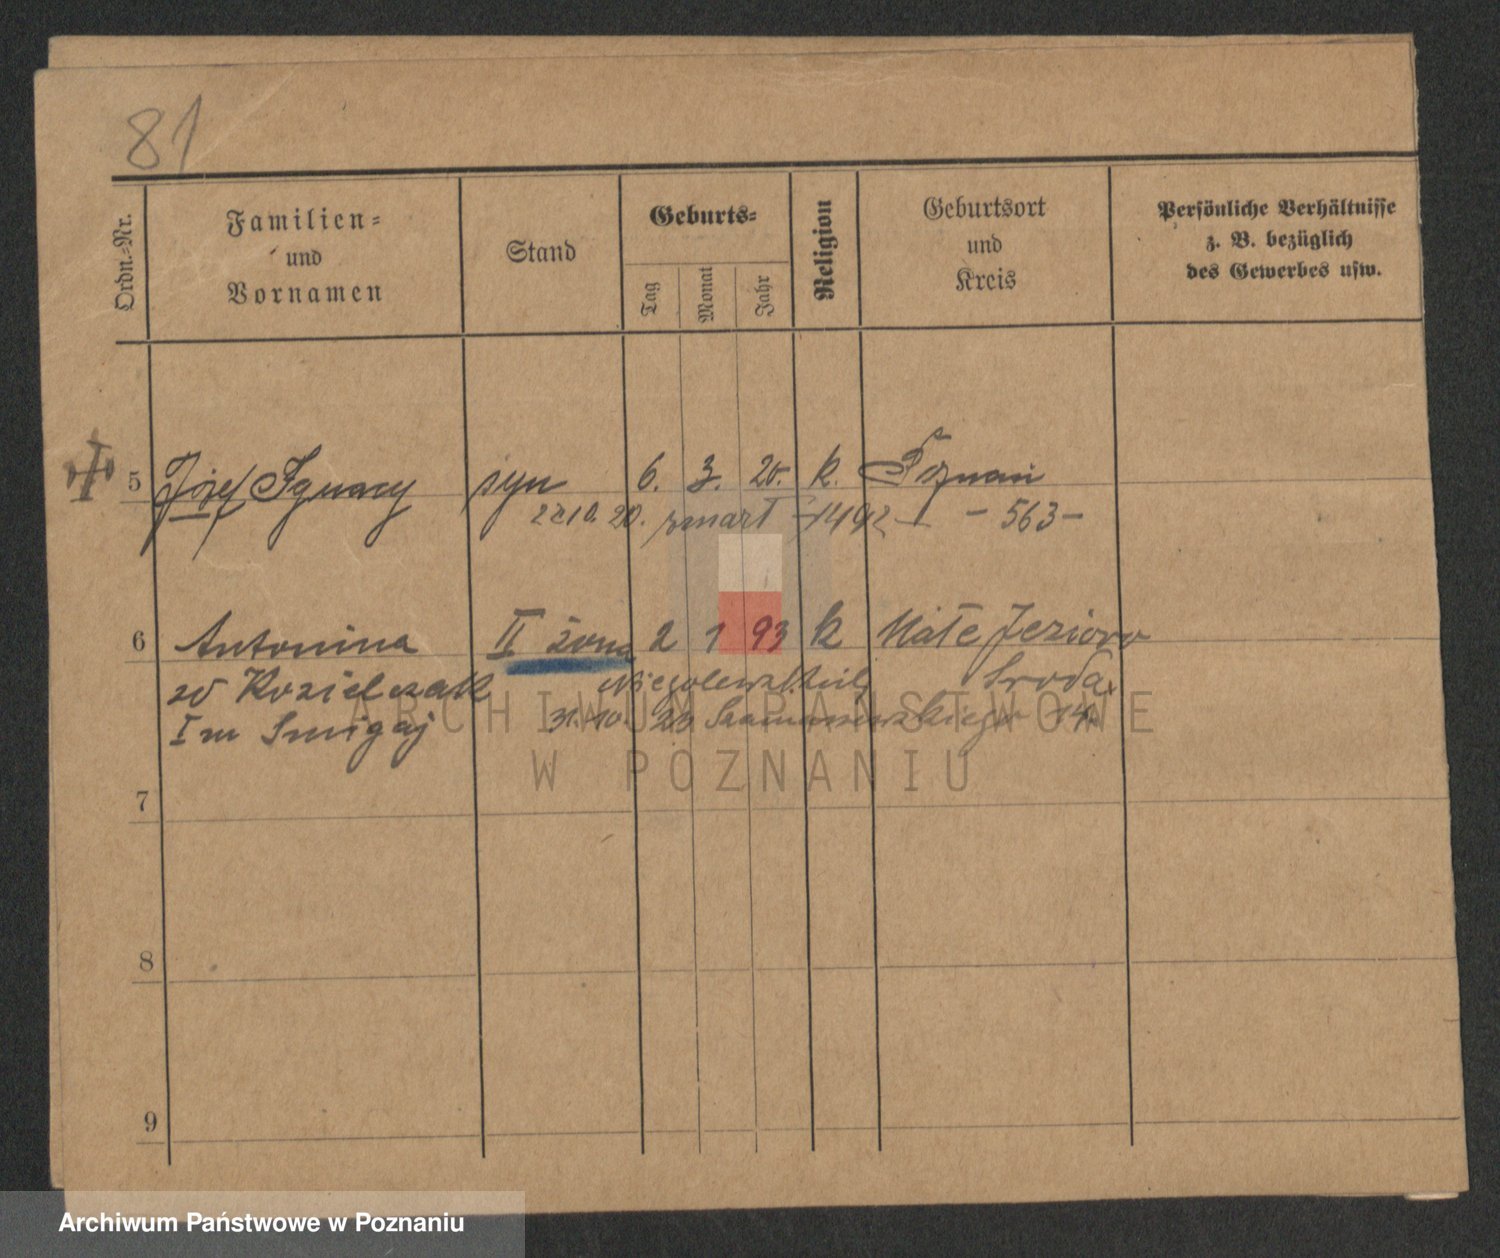 81
Ordn.-Nr.
Familien-
und
Vornamen
Stand
Geburts-
Tag
Monat
Jahr
Religion
Geburtsort
und
Kreis
Persönliche Verhältnisse
z. B. bezüglich
des Gewerbes usw.
5 Józef Ignacy syn 6. 3. 20. k. Poznań
22 10. 20. zmarł 1492 - 563 -
6 Antonina II żona 2 1 93 k Małe Jezioro
zd Kozielczak Środa
I m Smigaj 31. 10. 23 14
7
8
9
ARCHIWUM PAŃSTWOWE
W POZNANIU
Archiwum Państwowe w Poznaniu